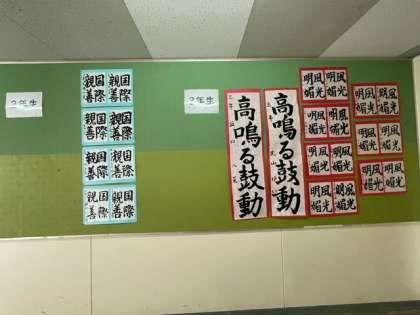 2年生
国際親善
国際親善
国際親善
国際親善
国際親善
国際親善
国際親善
国際親善
3年生
高鳴る鼓動
高鳴る鼓動
風光明媚
風光明媚
風光明媚
風光明媚
風光明媚
風光明媚
風光明媚
風光明媚
風光明媚
風光明媚
風光明媚
風光明媚
風光明媚
風光明媚